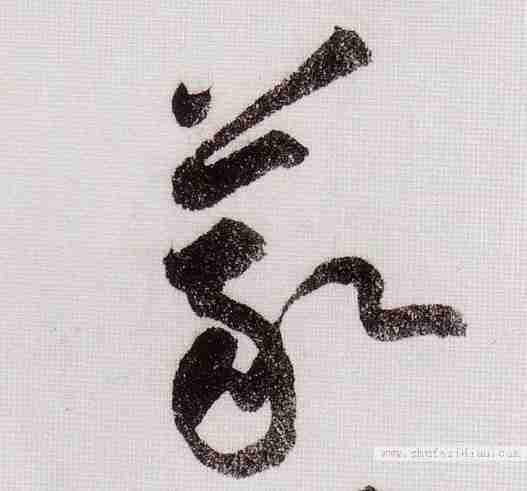 蒙
www.shufazidian.com